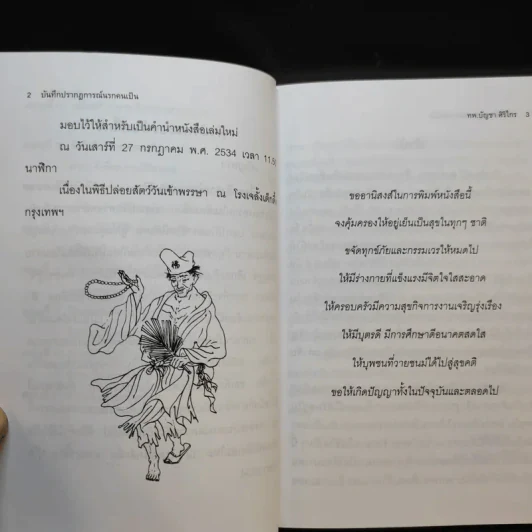 2 บันทึกปรากฏการณ์นรกคนเป็น
มอบไว้ให้สำหรับเป็นคำนำหนังสือเล่มใหม่
ณ วันเสาร์ที่ 27 กรกฎาคม พ.ศ. 2534 เวลา
นาฬิกา
เนื่องในพิธีปล่อยสัตว์วันเข้าพรรษา ณ
กรุงเทพฯ
佛
ทพ.บัญชา ศิริไกร 3
ขออานิสงส์ในการพิมพ์หนังสือนี้
จงคุ้มครองให้อยู่เย็นเป็นสุขในทุกๆ ชาติ
ขจัดทุกข์ภัยและกรรมเวรให้หมดไป
ให้มีร่างกายที่แข็งแรงมีจิตใจใสสะอาด
ให้ครอบครัวมีความสุขกิจการงานเจริญรุ่งเรือง
ให้มีบุตรดี มีการศึกษาดีอนาคตสดใส
ให้บุพชนที่วายชนม์ได้ไปสู่สุขคติ
ขอให้เกิดปัญญาทั้งในปัจจุบันและตลอดไป